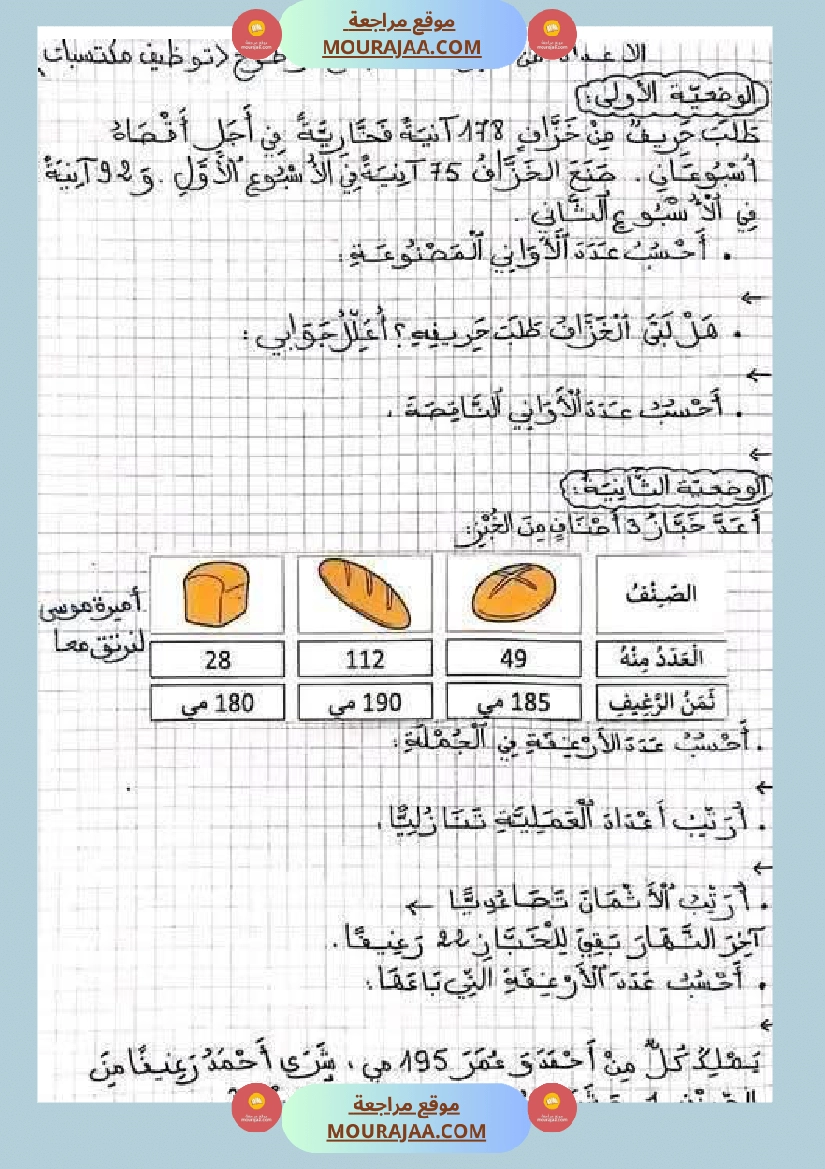 موقع مراجعة
MOURAJAA.COM
توظيف مكتسبات
الوضعيّة الأولى:
طَلَبَ حَرِيفٌ مِنْ خَزَّافٍ 178 آنِيَةً فَخَّارِيَّةً فِي أَجَلٍ أَقْصَاهُ
أُسْبُوعَانِ. صَنَعَ الخَزَّافُ 75 آنِيَةً فِي ٱلْأُسْبُوعِ ٱلْأَوَّلِ. وَ 92 آنِيَةً
فِي ٱلْأُسْبُوعِ ٱلثَّانِي.
• أَحْسُبُ عَدَدَ ٱلْأَوَانِي ٱلْمَصْنُوعَةِ:
←
• هَلْ لَبَّى ٱلْخَزَّافُ طَلَبَ حَرِيفِهِ؟ أُعَلِّلُ جَوَابِي:
←
• أَحْسُبُ عَدَدَ ٱلْأَوَانِي ٱلنَّاقِصَةِ.
←
الوضعيّة الثّانية:
أَعَدَّ خَبَّازٌ 3 أَصْنَافٍ مِنَ الخُبْزِ:
الصِّنْفُ
الْعَدَدُ مِنْهُ 49 112 28
ثَمَنُ الرَّغِيفِ 185 مي 190 مي 180 مي
أميرة موسى
لنرتق معا
• أَحْسُبُ عَدَدَ الأَرْغِفَةِ فِي ٱلْجُمْلَةِ:
←
• أُرَتِّبُ أَعْدَادَ ٱلْعَمَلِيَّةِ تَنَازُلِيًّا.
←
• أُرَتِّبُ ٱلْأَثْمَانَ تَصَاعُدِيًّا ←
آخِرَ النَّهَارِ بَقِيَ لِلْخَبَّازِ 22 رَغِيفًا.
• أَحْسُبُ عَدَدَ ٱلْأَرْغِفَةِ الَّتِي بَاعَهَا:
←
يَمْلِكُ كُلٌّ مِنْ أَحْمَدَ وَ عُمَرَ 195 مي، شَرَى أَحْمَدُ رَغِيفًا مِنَ
موقع مراجعة
MOURAJAA.COM